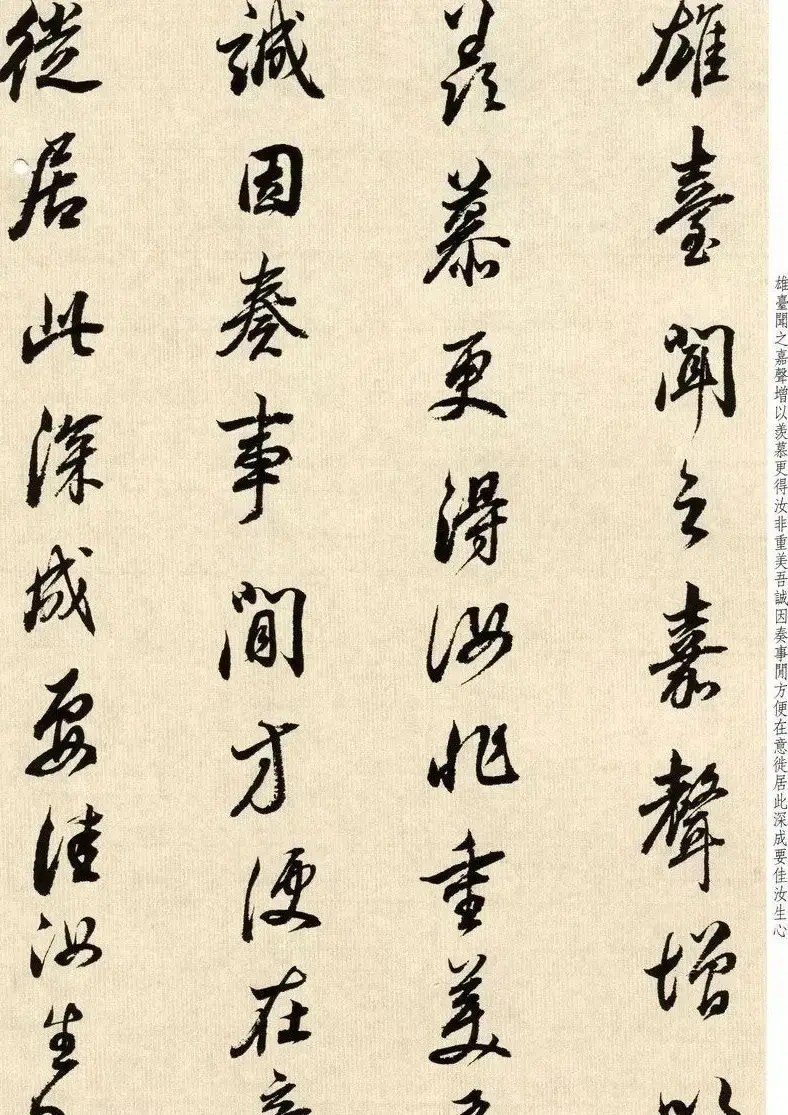 雄臺聞之嘉聲增以羨慕更得汝非重美吾誠因奏事閒方便在意徙居此深成要佳汝生心
雄臺聞之嘉聲增以
羨慕更得汝非重美
誠因奏事閒方便在意
徙居此深成要佳汝生